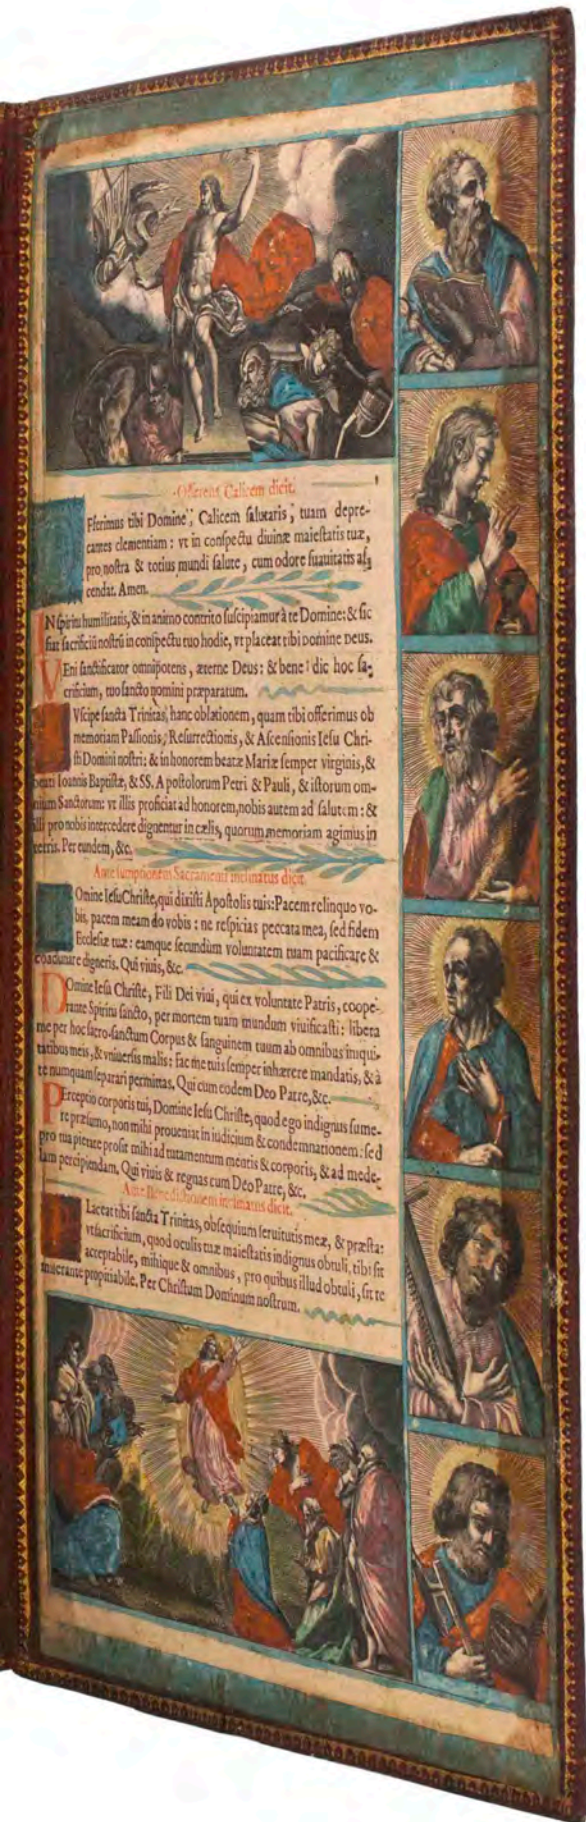 Offerens Calicem dicit.
OFferimus tibi Domine, Calicem ſalutaris, tuam depre-
cantes clementiam: vt in conſpectu diuinæ maieſtatis tuæ,
pro noſtra & totius mundi ſalute, cum odore ſuauitatis aſ-
cendat. Amen.
IN ſpiritu humilitatis, & in animo contrito ſuſcipiamur à te Domine: & ſic
fiat ſacrificiũ noſtrũ in conſpectu tuo hodie, vt placeat tibi Domine Deus.
VEni ſanctificator omnipotens, æterne Deus: & bene dic hoc ſa-
crificium, tuo ſancto nomini præparatum.
SVſcipe ſancta Trinitas, hanc oblationem, quam tibi offerimus ob
memoriam Paſſionis, Reſurrectionis, & Aſcenſionis Ieſu Chri-
ſti Domini noſtri: & in honorem beatæ Mariæ ſemper virginis, &
beati Ioannis Baptiſtæ, & SS. Apoſtolorum Petri & Pauli, & iſtorum om-
nium Sanctorum: vt illis proficiat ad honorem, nobis autem ad ſalutem: &
illi pro nobis intercedere dignentur in cælis, quorum memoriam agimus in
terris. Per eundem, &c.
Ante ſumptionem Sacramenti inclinatus dicit.
DOmine Ieſu Chriſte, qui dixiſti Apoſtolis tuis: Pacem relinquo vo-
bis, pacem meam do vobis: ne reſpicias peccata mea, ſed fidem
Eccleſiæ tuæ: eamque ſecundùm voluntatem tuam pacificare &
coadunare digneris. Qui viuis, &c.
DOmine Ieſu Chriſte, Fili Dei viui, qui ex voluntate Patris, coope-
rante Spiritu ſancto, per mortem tuam mundum viuificaſti: libera
me per hoc ſacro-ſanctum Corpus & ſanguinem tuum ab omnibus iniqui-
tatibus meis, & vniuerſis malis: fac me tuis ſemper inhærere mandatis, & à
te numquam ſeparari permittas, Qui cum eodem Deo Patre, &c.
PErceptio corporis tui, Domine Ieſu Chriſte, quod ego indignus ſume-
re præſumo, non mihi proueniat in iudicium & condemnationem: ſed
pro tua pietate proſit mihi ad tutamentum mentis & corporis, & ad mede-
lam percipiendam, Qui viuis & regnas cum Deo Patre, &c.
Ante Benedictionem inclinatus dicit.
PLaceat tibi ſancta Trinitas, obſequium ſeruitutis meæ, & præſta:
vt ſacrificium, quod oculis tuæ maieſtatis indignus obtuli, tibi ſit
acceptabile, mihique & omnibus, pro quibus illud obtuli, ſit te
miſerante propitiabile. Per Chriſtum Dominum noſtrum.